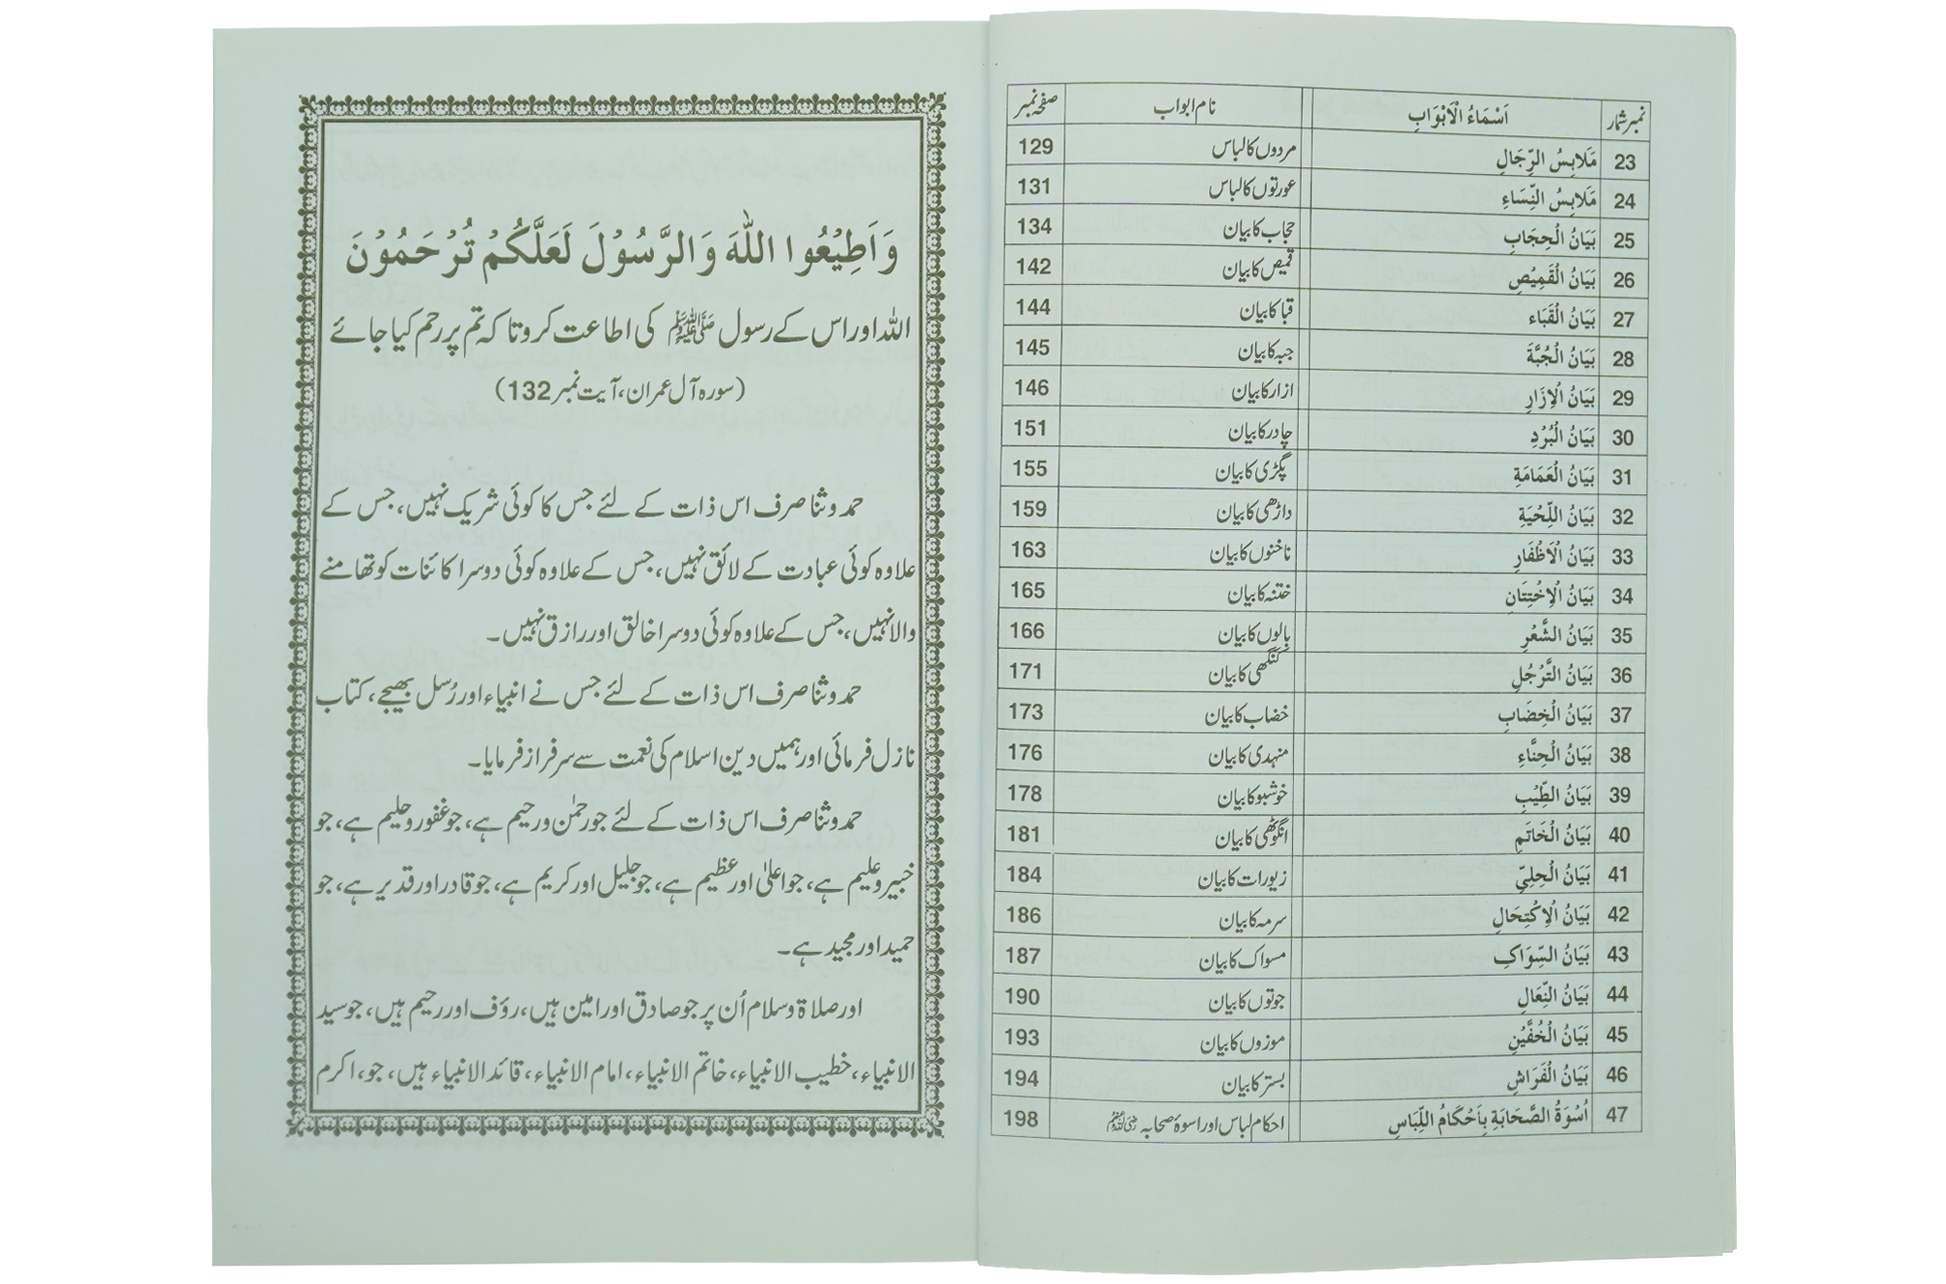 نمبر شمار اَسْمَاءُ الْاَبْوَابِ نام ابواب صفحہ نمبر
23 مَلَابِسُ الرِّجَالِ مردوں کا لباس 129
24 مَلَابِسُ النِّسَاءِ عورتوں کا لباس 131
25 بَيَانُ الْحِجَابِ حجاب کا بیان 134
26 بَيَانُ الْقَمِيْصِ قمیص کا بیان 142
27 بَيَانُ الْقَبَاء قبا کا بیان 144
28 بَيَانُ الْجُبَّةَ جبہ کا بیان 145
29 بَيَانُ الْاِزَارِ ازار کا بیان 146
30 بَيَانُ الْبُرْدِ چادر کا بیان 151
31 بَيَانُ الْعَمَامَةِ پگڑی کا بیان 155
32 بَيَانُ اللِّحْيَةِ داڑھی کا بیان 159
33 بَيَانُ الْاَظْفَارِ ناخنوں کا بیان 163
34 بَيَانُ الْاِخْتِتَانِ ختنہ کا بیان 165
35 بَيَانُ الشَّعْرِ بالوں کا بیان 166
36 بَيَانُ التَّرَجُلِ کنگھی کا بیان 171
37 بَيَانُ الْخِضَابِ خضاب کا بیان 173
38 بَيَانُ الْحِنَّاءِ منہدی کا بیان 176
39 بَيَانُ الطِّيْبِ خوشبو کا بیان 178
40 بَيَانُ الْخَاتَمِ انگوٹھی کا بیان 181
41 بَيَانُ الْحِلِيِّ زیورات کا بیان 184
42 بَيَانُ الْاِكْتِحَالِ سرمہ کا بیان 186
43 بَيَانُ السِّوَاكِ مسواک کا بیان 187
44 بَيَانُ النِّعَالِ جوتوں کا بیان 190
45 بَيَانُ الْخُفَّيْنِ موزوں کا بیان 193
46 بَيَانُ الْفَرَاشِ بستر کا بیان 194
47 اُسْوَةُ الصَّحَابَةِ بِاَحْكَامُ اللِّبَاسِ احکام لباس اور اسوۂ صحابہ 198
وَاَطِيْعُوا اللّٰهَ وَالرَّسُوْلَ لَعَلَّكُمْ تُرْحَمُوْنَ
اللہ اور اس کے رسول ﷺ کی اطاعت کرو تا کہ تم پر رحم کیا جائے
(سورہ آل عمران، آیت نمبر 132)
حمد و ثنا صرف اس ذات کے لئے جس کا کوئی شریک نہیں، جس کے
علاوہ کوئی عبادت کے لائق نہیں، جس کے علاوہ کوئی دوسرا کائنات کو تھامنے
والا نہیں، جس کے علاوہ کوئی دوسرا خالق اور رازق نہیں۔
حمد و ثنا صرف اس ذات کے لئے جس نے انبیاء اور رُسل بھیجے، کتاب
نازل فرمائی اور ہمیں دین اسلام کی نعمت سے سرفراز فرمایا۔
حمد و ثنا صرف اس ذات کے لئے جو رحمٰن و رحیم ہے، جو غفور و حلیم ہے، جو
خبیر و علیم ہے، جو اعلیٰ اور عظیم ہے، جو جلیل اور کریم ہے، جو قادر اور قدیر ہے، جو
حمید اور مجید ہے۔
اور صلاۃ و سلام اُن پر جو صادق اور امین ہیں، رؤف اور رحیم ہیں، جو سید
الانبیاء، خطیب الانبیاء، خاتم الانبیاء، امام الانبیاء، قائد الانبیاء ہیں، جو، اکرم